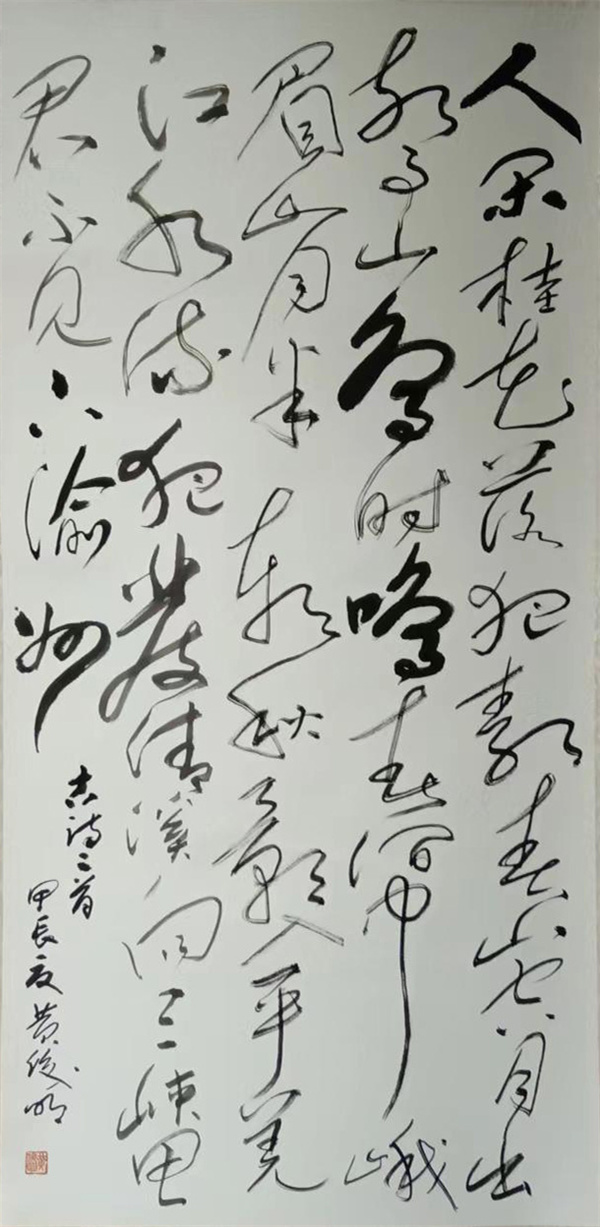 人闲桂花落夜静春山空月出
驚山鸟时鸣春涧中峨
眉山月半輪秋影入平羌
江水流夜發清溪向三峡思
君不见下渝州
古诗二首
甲辰夏黄俊明